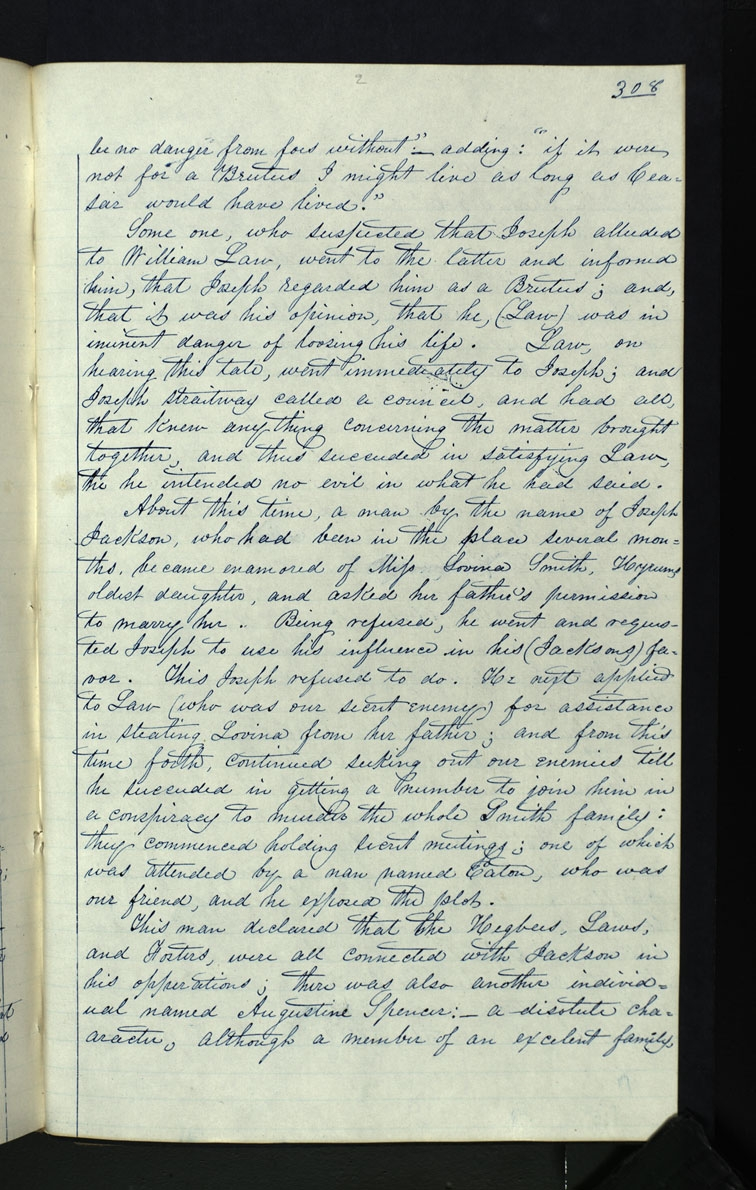 2
308
be no danger from foes without"— adding: "if it were
not for a Brutus I might live as long as Cea=
sar would have lived."
Some one, who suspected that Joseph alluded
to William Law, went to the latter and informed
him, that Joseph regarded him as a Brutus; and,
that it was his opinion, that he, (Law) was in
iminent danger of loosing his life. Law, on
hearing this tale, went immediately to Joseph; and
Joseph straitway called a council, and had all,
that knew any thing concerning the matter brought
together, and thus succeeded in satisfying Law,
he intended no evil in what he had said.
About this time, a man by the name of Joseph
Jackson, who had been in the place several mon=
ths. became enamored of Miss Lovina Smith, Hyrums
oldest daughter, and asked her father's permission
to marry her. Being refused, he went and reques-
ted Joseph to use his influence in his (Jacksons) fa-
vor. This Joseph refused to do. He next applied
to Law (who was our secret enemy) for assistance
in stealing Lovina from her father; and from this
time forth, continued seeking out our enemies till
he succeeded in getting a number to join him in
a conspiracy to murder the whole Smith family:
they commenced holding secret meetings; one of which
was attended by a man named Eaton, who was
our friend, and he exposed the plot.
This man declared that the Hegbees, Laws,
and Fosters, were all connected with Jackson in
his opperations; there was also another individ=
ual named Augustine Spencer:— a disolute cha=
aracter, although a member of an excelent family